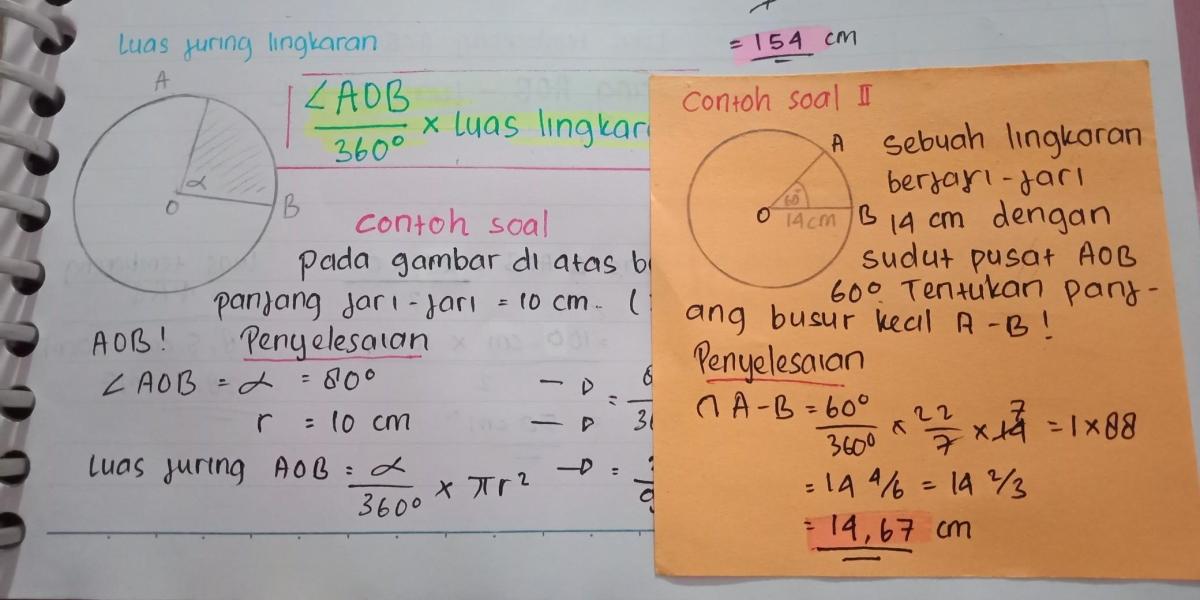 Luas juring lingkaran
= 154 cm
A
O
α
B
∠AOB
360° × luas lingkar
contoh soal
pada gambar di atas b
panjang jari-jari = 10 cm. (
AOB! Penyelesaian
∠AOB = α = 80°
r = 10 cm
Luas juring AOB = α/360° × πr²
Contoh soal II
A
60°
O
14cm
B
sebuah lingkaran
berjari-jari
14 cm dengan
sudut pusat AOB
60° Tentukan panj-
ang busur kecil A-B!
Penyelesaian
∩ A-B = 60°/360° × 22/7 × 14 7 = 1×88
= 14 4/6 = 14 2/3
= 14,67 cm